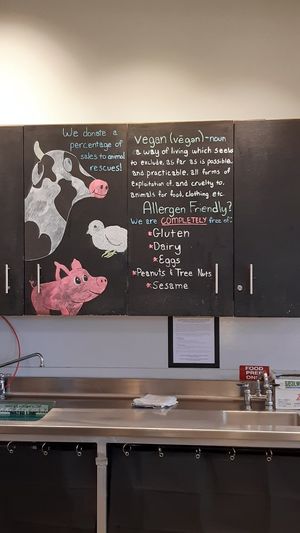 We donate a
percentage of
sales to animal
rescues!
vegan (vēgan) - noun
a way of living which seeks
to exclude, as far as is possible
and practicable, all forms of
exploitation of, and cruelty to,
animals for food, clothing etc.
Allergen Friendly?
We are COMPLETELY free of:
*Gluten
*Dairy
*Eggs
*Peanuts & Tree Nuts
*Sesame
FOOD
PREP
ONLY